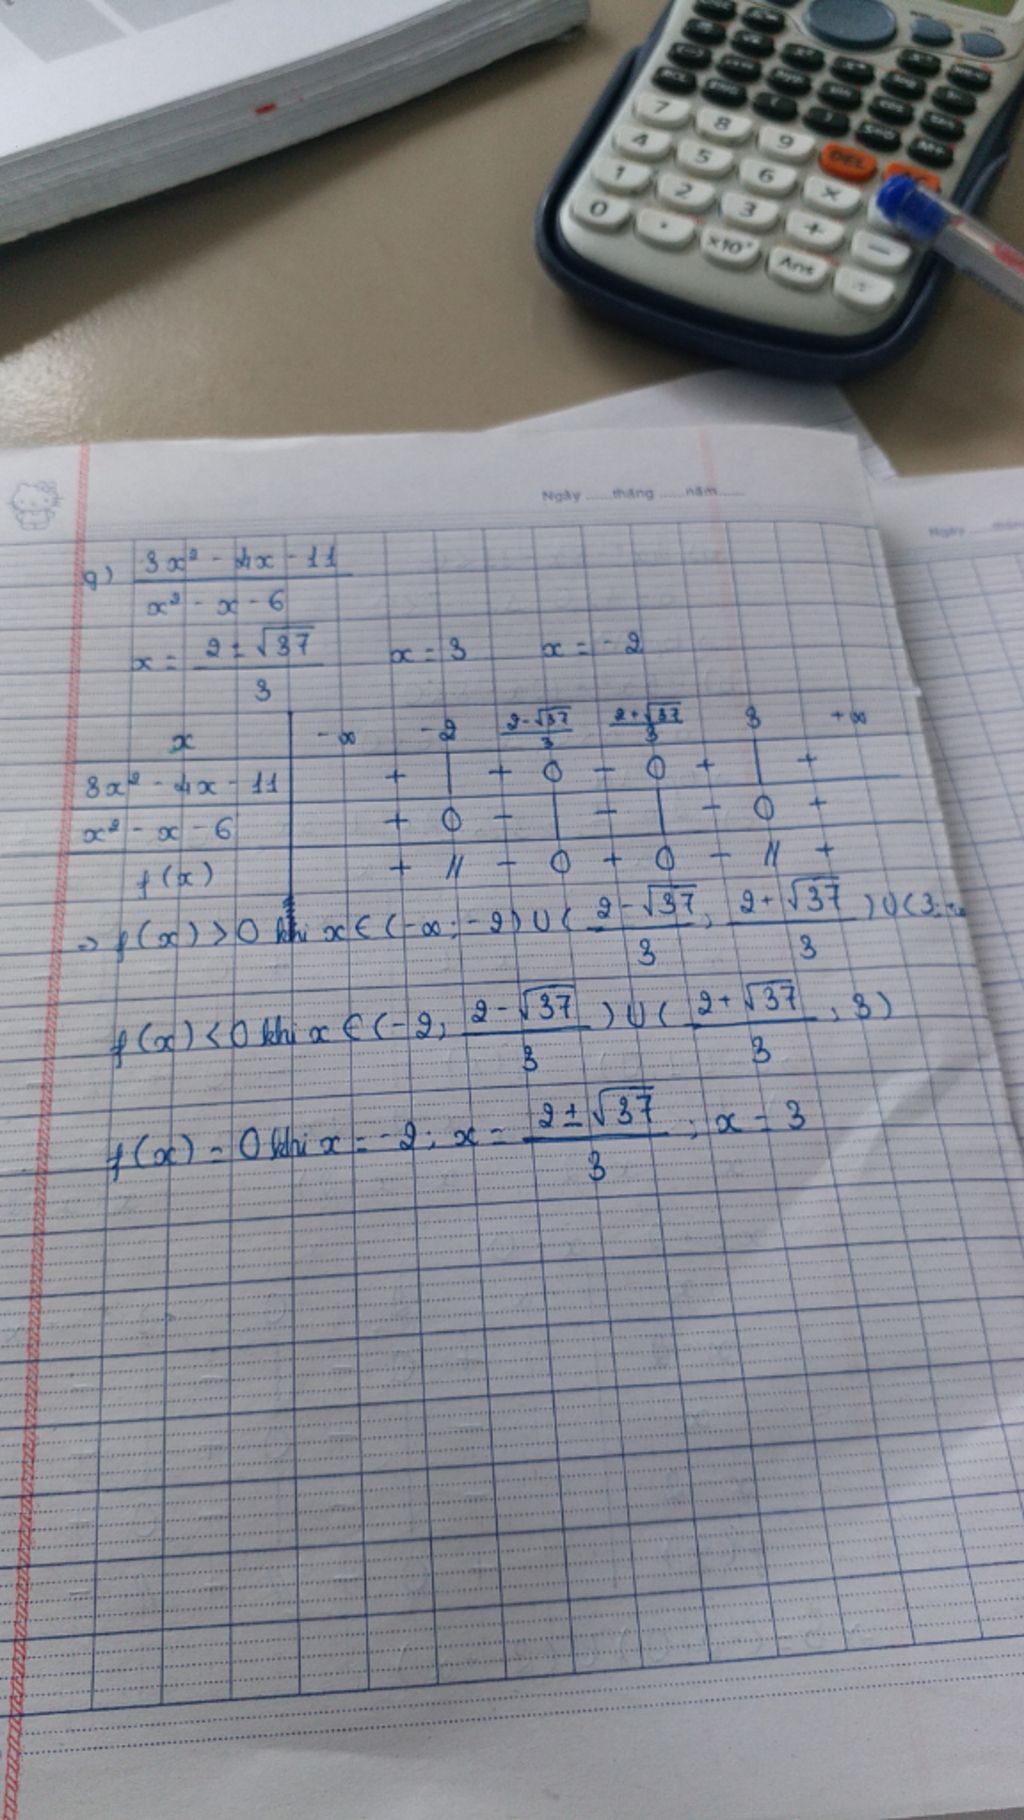 7 8 9 DEL
4 5 6 ×
1 2 3 + −
0 . ×10ˣ Ans =
Ngày ......tháng ......năm......
Ngày
g) 3x² - 4x - 11
x² - x - 6
x = 2 ± √37 x = 3 x = - 2
3
x -∞ -2 2-√37 2+√37 3 +∞
3 3
3x² - 4x - 11 + | + 0 - 0 + | +
x² - x - 6 + 0 - | - | - 0 +
f(x) + || - 0 + 0 - || +
⇒ f(x) > 0 khi x ∈ (-∞; -2) ∪ ( 2 - √37 ; 2 + √37 ) ∪ (3;
3 3
f(x) < 0 khi x ∈ (-2; 2 - √37 ) ∪ ( 2 + √37 ; 3)
3 3
f(x) = 0 khi x = -2; x = 2 ± √37 ; x = 3
3